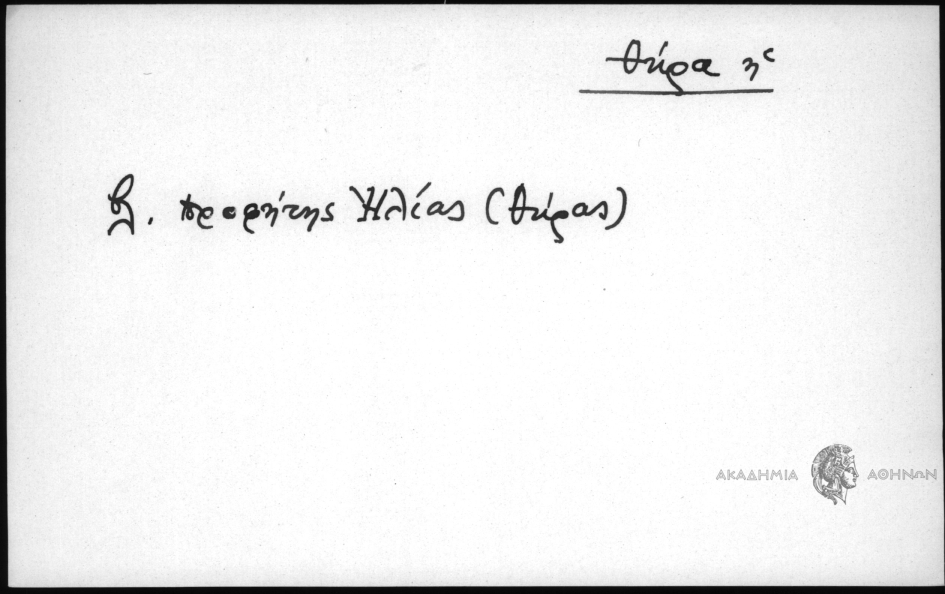 Θήρα ἡ
βλ. προφήτης Ἠλίας (Θήρας)
ΑΚΑΔΗΜΙΑ ΑΘΗΝΩΝ